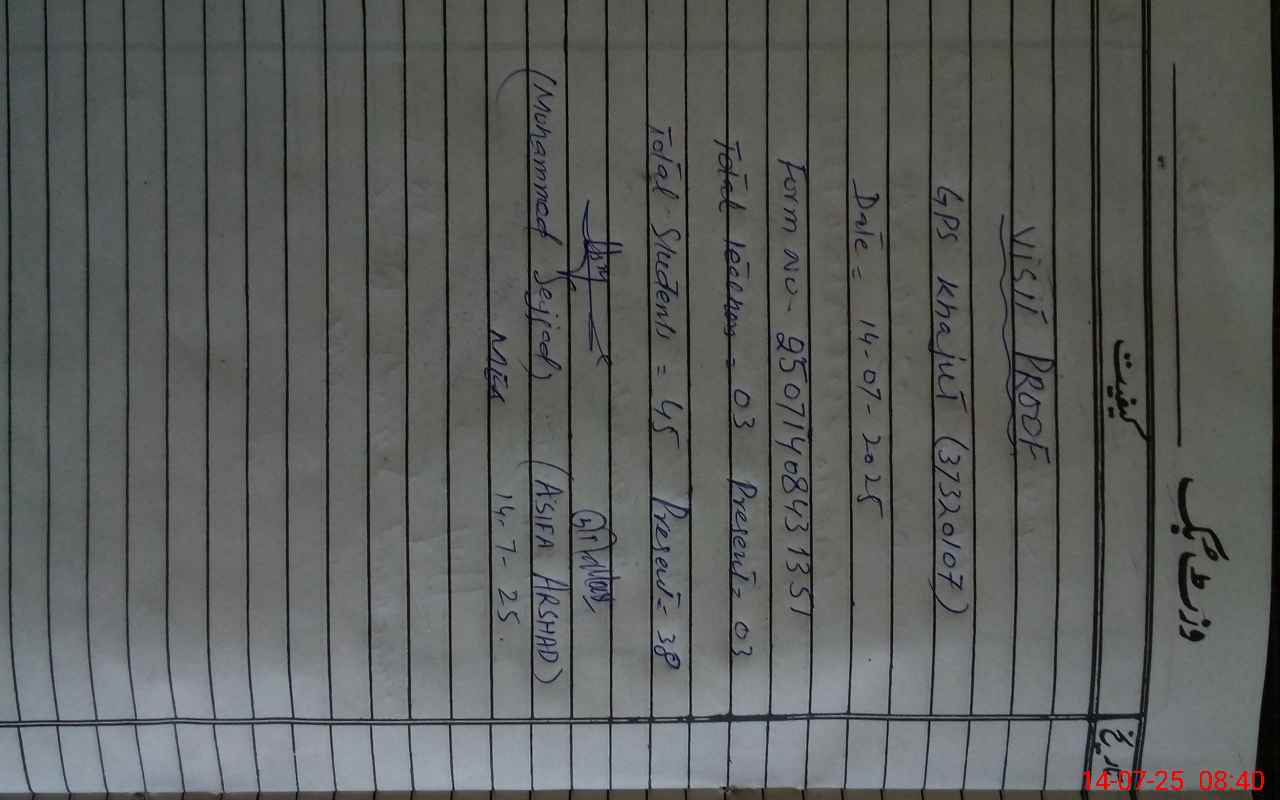 وزٹ بک
کیفیت
تاریخ
VISIT PROOF
GPS Khajut (37320107)
Date = 14-07-2025
Form No- 25071408431351
Total teachers = 03 Present = 03
Total Students = 45 Present = 38
(Muhammad Sajjad) (ASIFA ARSHAD)
MEA 14-7-25.
14-07-25 08:40